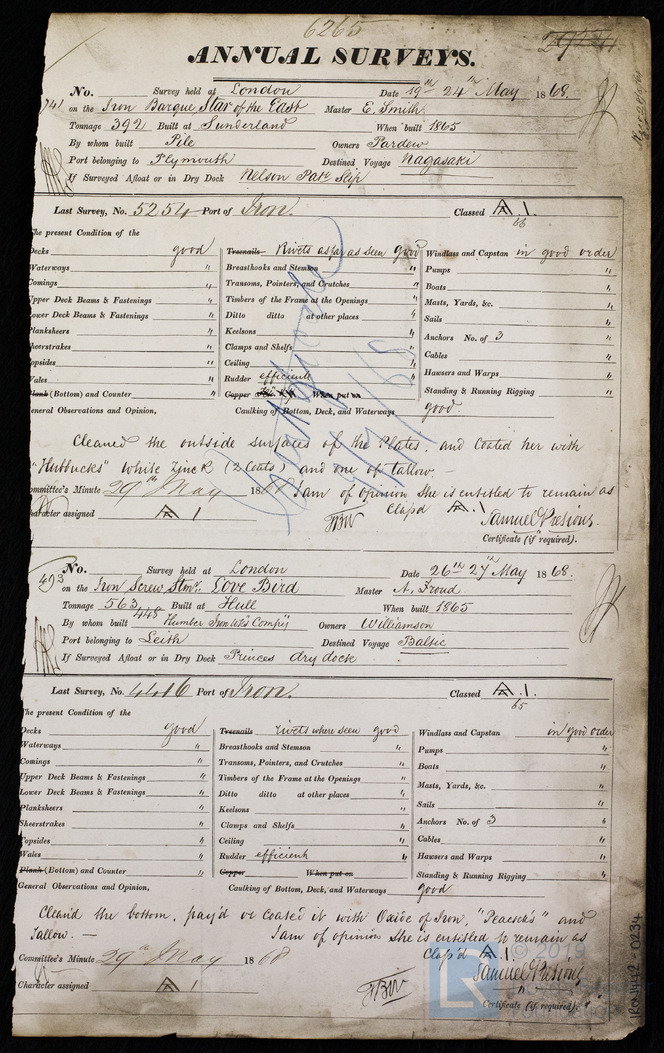 6265
ANNUAL SURVEYS.
No. Survey held at London Date 19th 24th May 1868.
741 on the Iron Barque Star of the East Master E. Smith.
Tonnage 392 Built at Sunderland When built 1865
By whom built Pile Owners Pardew
Port belonging to Plymouth Destined Voyage Nagasaki
If Surveyed Afloat or in Dry Dock Nelson Patt Slip
Last Survey, No. 5254 Port of Iron. Classed A.1.
66
The present Condition of the
Decks good Treenails Rivets as far as seen good Windlass and Capstan in good order
Waterways " Breasthooks and Stemson " Pumps "
Comings " Transoms, Pointers, and Crutches " Boats "
Upper Deck Beams & Fastenings " Timbers of the Frame at the Openings " Masts, Yards, &c. "
Lower Deck Beams & Fastenings " Ditto ditto at other places " Sails "
Planksheers " Keelsons " Anchors No. of 3 "
Sheerstrakes " Clamps and Shelfs " Cables "
Topsides " Ceiling " Hawsers and Warps "
Wales " Rudder efficient " Standing & Running Rigging "
Plank (Bottom) and Counter " Copper When put on
General Observations and Opinion, Caulking of Bottom, Deck, and Waterways good.
Cleaned the outside surfaces of the Plates, and Coated her with
"Hubbucks" White Zinck (2 Coats) and one of tallow. —
Committee's Minute 29th May 1868 I am of opinion She is entitled to remain as
Character assigned A 1 Clas'd A.1.
Samuel Presious.
Certificate (if required).
No. Survey held at London Date 26th 27th May 1868.
493 on the Iron Screw Stmr. Love Bird Master A. Froud
Tonnage 563 448 Built at Hull When built 1865
By whom built Humber Iron Wks Compy Owners Williamson
Port belonging to Leith Destined Voyage Baltic
If Surveyed Afloat or in Dry Dock Princes dry dock
Last Survey, No. 4416 Port of Iron. Classed A.1.
65
The present Condition of the
Decks good Treenails rivets where seen good Windlass and Capstan in good order
Waterways " Breasthooks and Stemson " Pumps "
Comings " Transoms, Pointers, and Crutches " Boats "
Upper Deck Beams & Fastenings " Timbers of the Frame at the Openings " Masts, Yards, &c. "
Lower Deck Beams & Fastenings " Ditto ditto at other places " Sails "
Planksheers " Keelsons " Anchors No. of 3 "
Sheerstrakes " Clamps and Shelfs " Cables "
Topsides " Ceiling " Hawsers and Warps "
Wales " Rudder efficient " Standing & Running Rigging "
Plank (Bottom) and Counter " Copper When put on
General Observations and Opinion, Caulking of Bottom, Deck, and Waterways good
Clean'd the bottom, pay'd or Coated it with Oxide of Iron, "Peacock's" and
Tallow. — I am of opinion She is entitled to remain as
Committee's Minute 29th May 1868 Clas'd A.1.
Character assigned A 1 Samuel Presious
Certificate (if required).
© 2019
LR